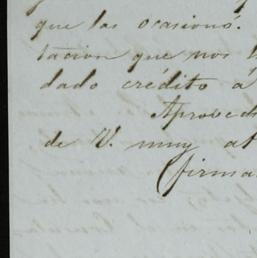 que las ocasionó.
tacion que nos
dado crédito á
Aproved
de V. muy at
(firma